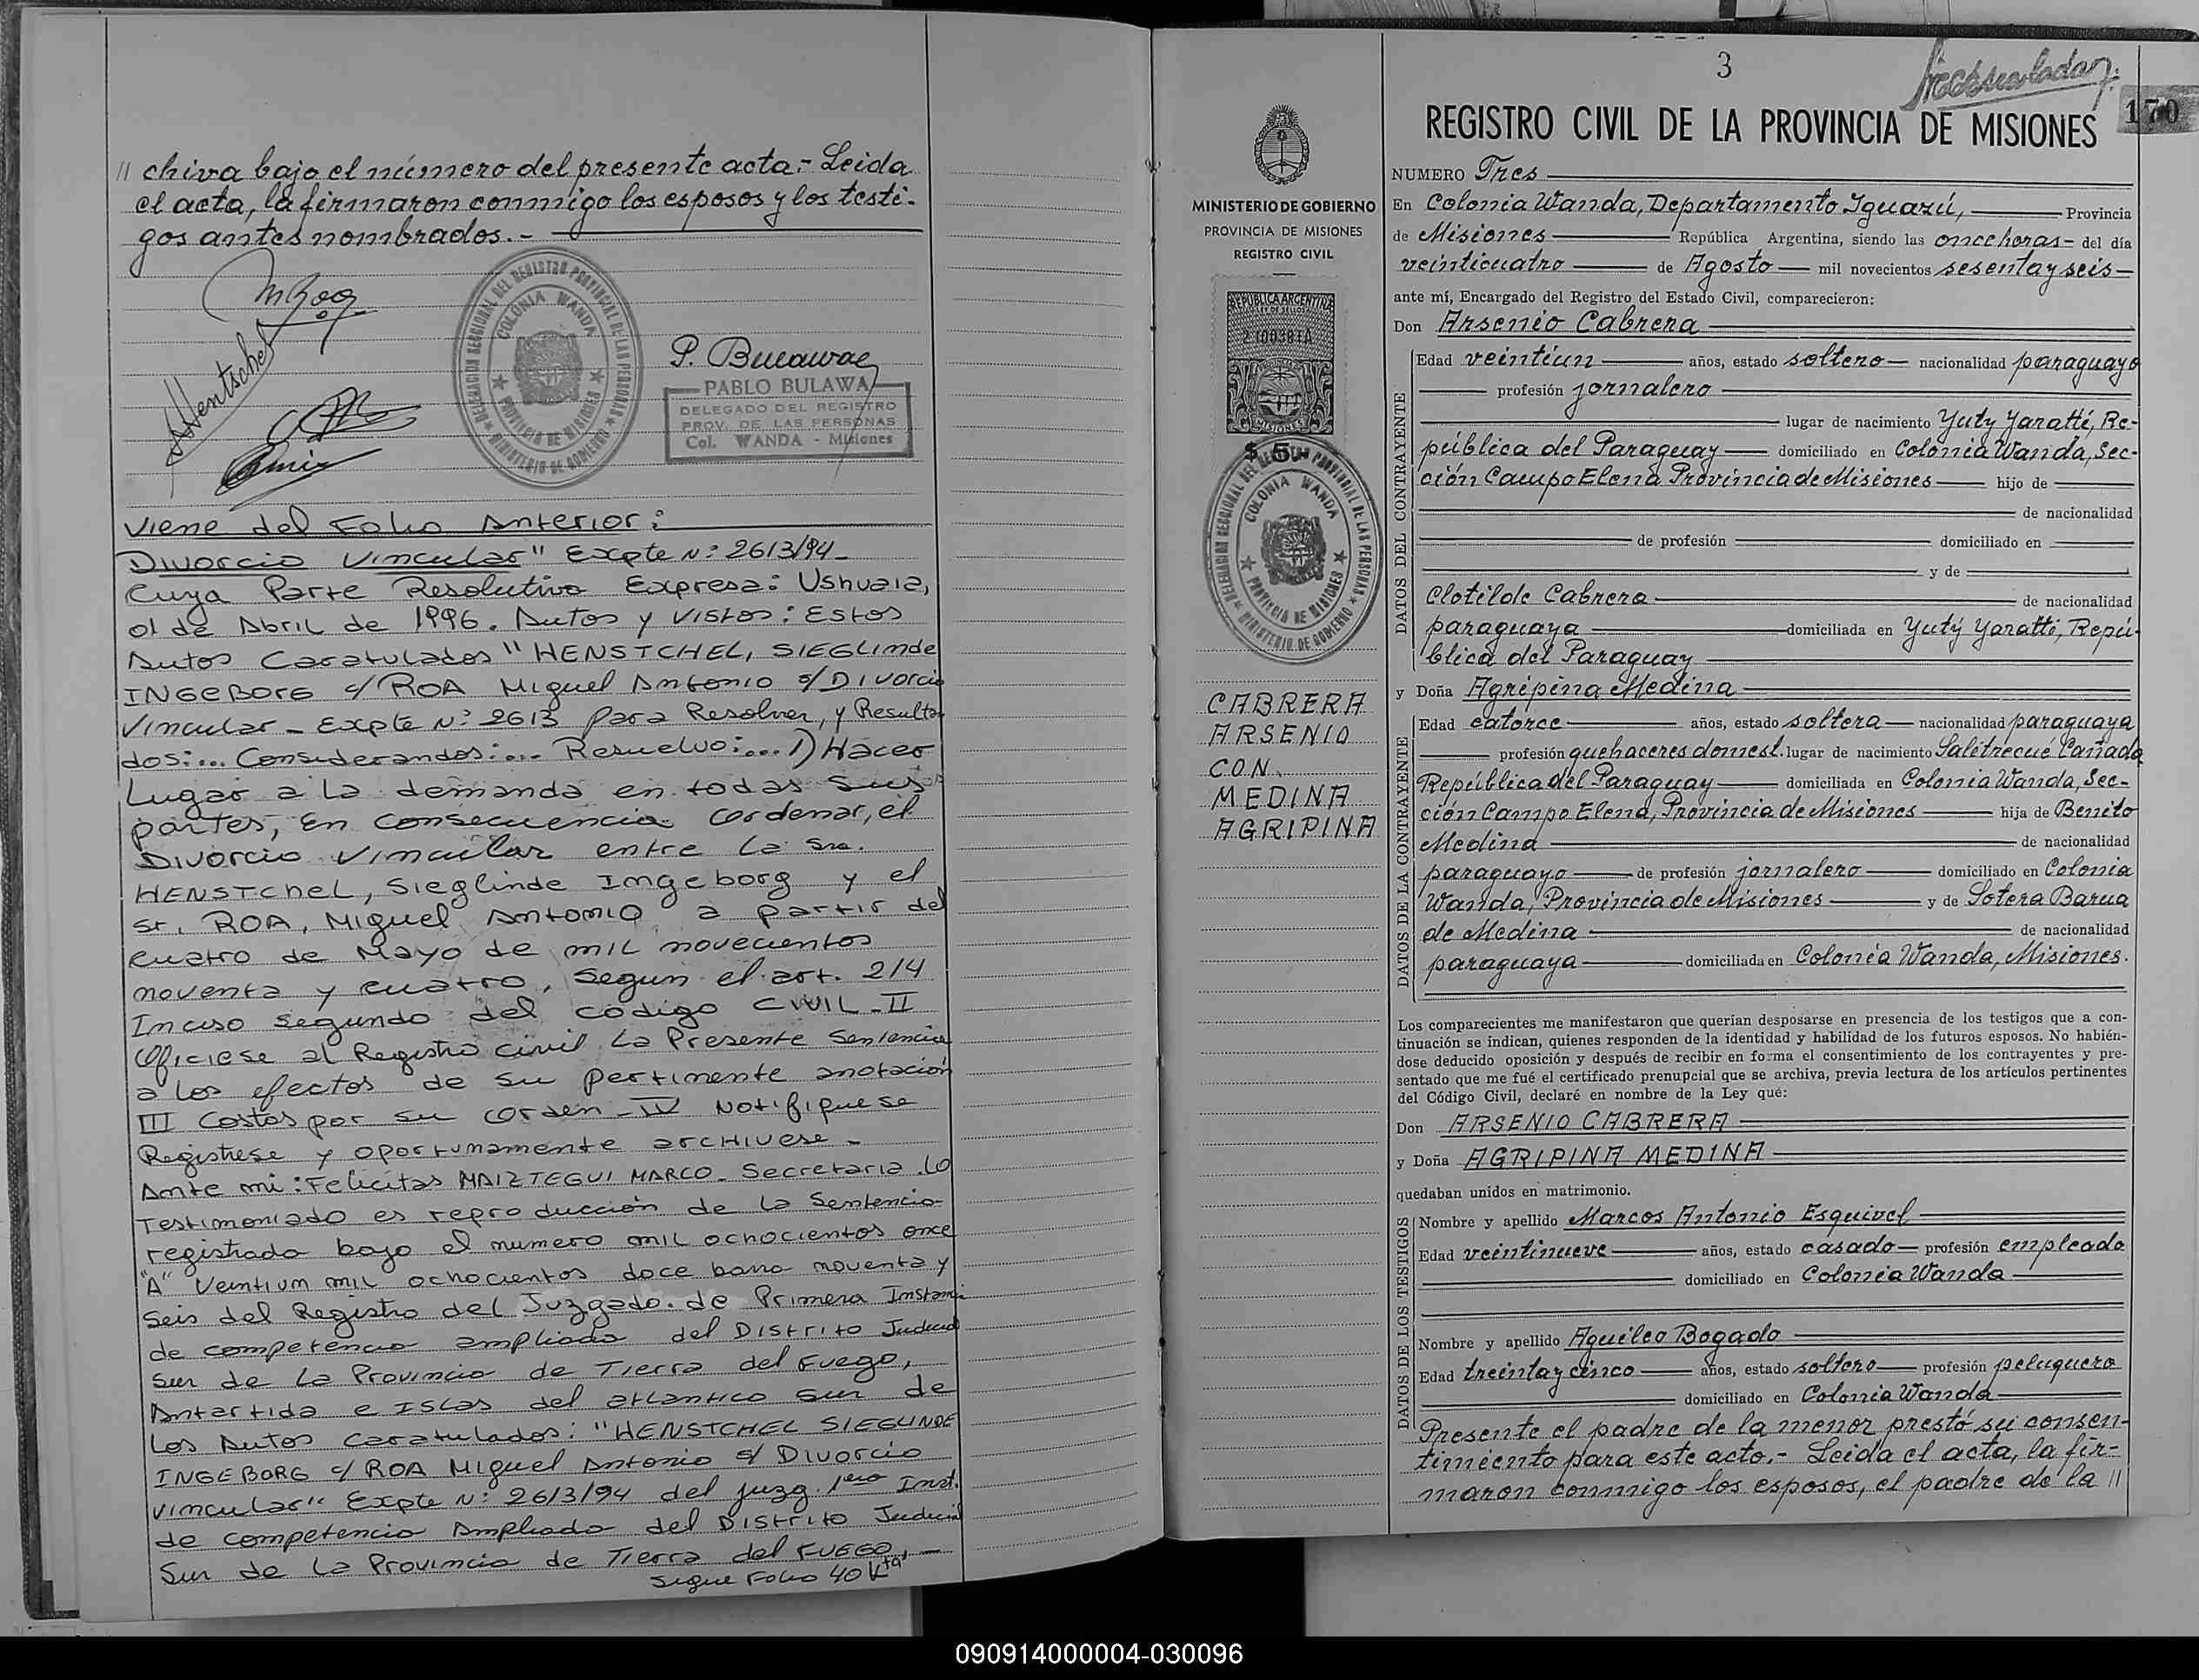 // chiva bajo el número del presente acta:- Leida
el acta, la firmaron conmigo los esposos y los testi-
gos antes nombrados.-
MRoa
SHentschel
DELEGACION SECCIONAL DEL REGISTRO PROVINCIAL DE LAS PERSONAS
COLONIA WANDA
PROVINCIA DE MISIONES
MINISTERIO DE GOBIERNO
P. Bulawa
PABLO BULAWA
DELEGADO DEL REGISTRO
PROV. DE LAS PERSONAS
Col. WANDA - Misiones
Viene del Folio Anterior:
Divorcio Vincular" Expte Nº 2613/94-
Cuya Parte Resolutiva Expresa: Ushuaia,
01 de Abril de 1996. Autos y Vistos: Estos
Autos Caratulados "HENSTCHEL, SIEGLINDE
INGEBORG c/ ROA Miguel Antonio s/ Divorcio
Vincular - Expte Nº 2613 para Resolver, y Resulta
dos:... Considerandos:... Resuelvo:... 1) Hacer
Lugar a la demanda en todas sus
partes, En consecuencia Cordenar, el
Divorcio Vincular entre la Sra.
HENSTCHEL, Sieglinde Ingeborg y el
Sr. ROA, Miguel Antonio a partir del
cuatro de Mayo de mil novecientos
noventa y cuatro, Segun el art. 214
Inciso Segundo del código CIVIL-II
Oficiese al Registro civil La Presente Sentencia
a los efectos de su pertinente anotación
III Costas por su orden-IV Notifiquese
Registrese y oportunamente archivese-
Ante mi: Felicitas MAIZTEGUI MARCO- Secretaria. Lo
Testimoniado es reproducción de la Sentencia
registrada bajo el numero mil ochocientos once
"A" Veintium mil ochocientos doce barra noventa y
seis del Registro del Juzgado de Primera Instan
de competencia ampliada del Distrito Judicial
Sur de la Provincia de Tierra del Fuego,
Antartida e Islas del atlantico Sur de
Los Autos Caratulados: "HENSTCHEL SIEGLINDE
INGEBORG c/ ROA Miguel Antonio s/ Divorcio
Vincular" Expte Nº 2613/94 del juzg. 1era Inst.
de competencia Ampliada del Distrito Judicial
Sur de la Provincia de Tierra del FUEGO,-
Sigue Folio 40 Vta
3
170
REGISTRO CIVIL DE LA PROVINCIA DE MISIONES
MINISTERIO DE GOBIERNO
PROVINCIA DE MISIONES
REGISTRO CIVIL
REPUBLICA ARGENTINA
LEY DE SELLOS
MISIONES
$ 5
DELEGACION SECCIONAL DEL REGISTRO PROVINCIAL DE LAS PERSONAS
COLONIA WANDA
PROVINCIA DE MISIONES
MINISTERIO DE GOBIERNO
CABRERA
ARSENIO
CON
MEDINA
AGRIPINA
NUMERO Tres
En Colonia Wanda, Departamento Iguazú, Provincia
de Misiones República Argentina, siendo las once horas- del día
veinticuatro de Agosto mil novecientos sesenta y seis-
ante mí, Encargado del Registro del Estado Civil, comparecieron:
Don Arsenio Cabrera
DATOS DEL CONTRAYENTE
Edad veintiun años, estado soltero- nacionalidad paraguayo
profesión jornalero
lugar de nacimiento Yuty Yaratti, Re-
pública del Paraguay domiciliado en Colonia Wanda, Sec-
ción Campo Elena Provincia de Misiones hijo de
de nacionalidad
de profesión domiciliado en
y de
Clotilde Cabrera de nacionalidad
paraguaya domiciliada en Yuty Yaratti, Repú-
blica del Paraguay
y Doña Agripina Medina
DATOS DE LA CONTRAYENTE
Edad catorce años, estado soltera- nacionalidad paraguaya
profesión quehaceres domest. lugar de nacimiento Salitrecué Cañada
República del Paraguay domiciliada en Colonia Wanda, Sec-
ción Campo Elena, Provincia de Misiones hija de Benito
Medina de nacionalidad
paraguayo de profesión jornalero domiciliado en Colonia
Wanda, Provincia de Misiones y de Sotera Barua
de Medina de nacionalidad
paraguaya domiciliada en Colonia Wanda, Misiones.
Los comparecientes me manifestaron que querían desposarse en presencia de los testigos que a con-
tinuación se indican, quienes responden de la identidad y habilidad de los futuros esposos. No habién-
dose deducido oposición y después de recibir en forma el consentimiento de los contrayentes y pre-
sentado que me fué el certificado prenupcial que se archiva, previa lectura de los artículos pertinentes
del Código Civil, declaré en nombre de la Ley que:
Don ARSENIO CABRERA
y Doña AGRIPINA MEDINA
quedaban unidos en matrimonio.
DATOS DE LOS TESTIGOS
Nombre y apellido Marcos Antonio Esquivel
Edad veintinueve años, estado casado- profesión empleado
domiciliado en Colonia Wanda
Nombre y apellido Aquileo Bogado
Edad treinta y cinco años, estado soltero- profesión peluquero
domiciliado en Colonia Wanda
Presente el padre de la menor prestó su consen-
timiento para este acto.- Leida el acta, la fir-
maron conmigo los esposos, el padre de la //
090914000004-030096